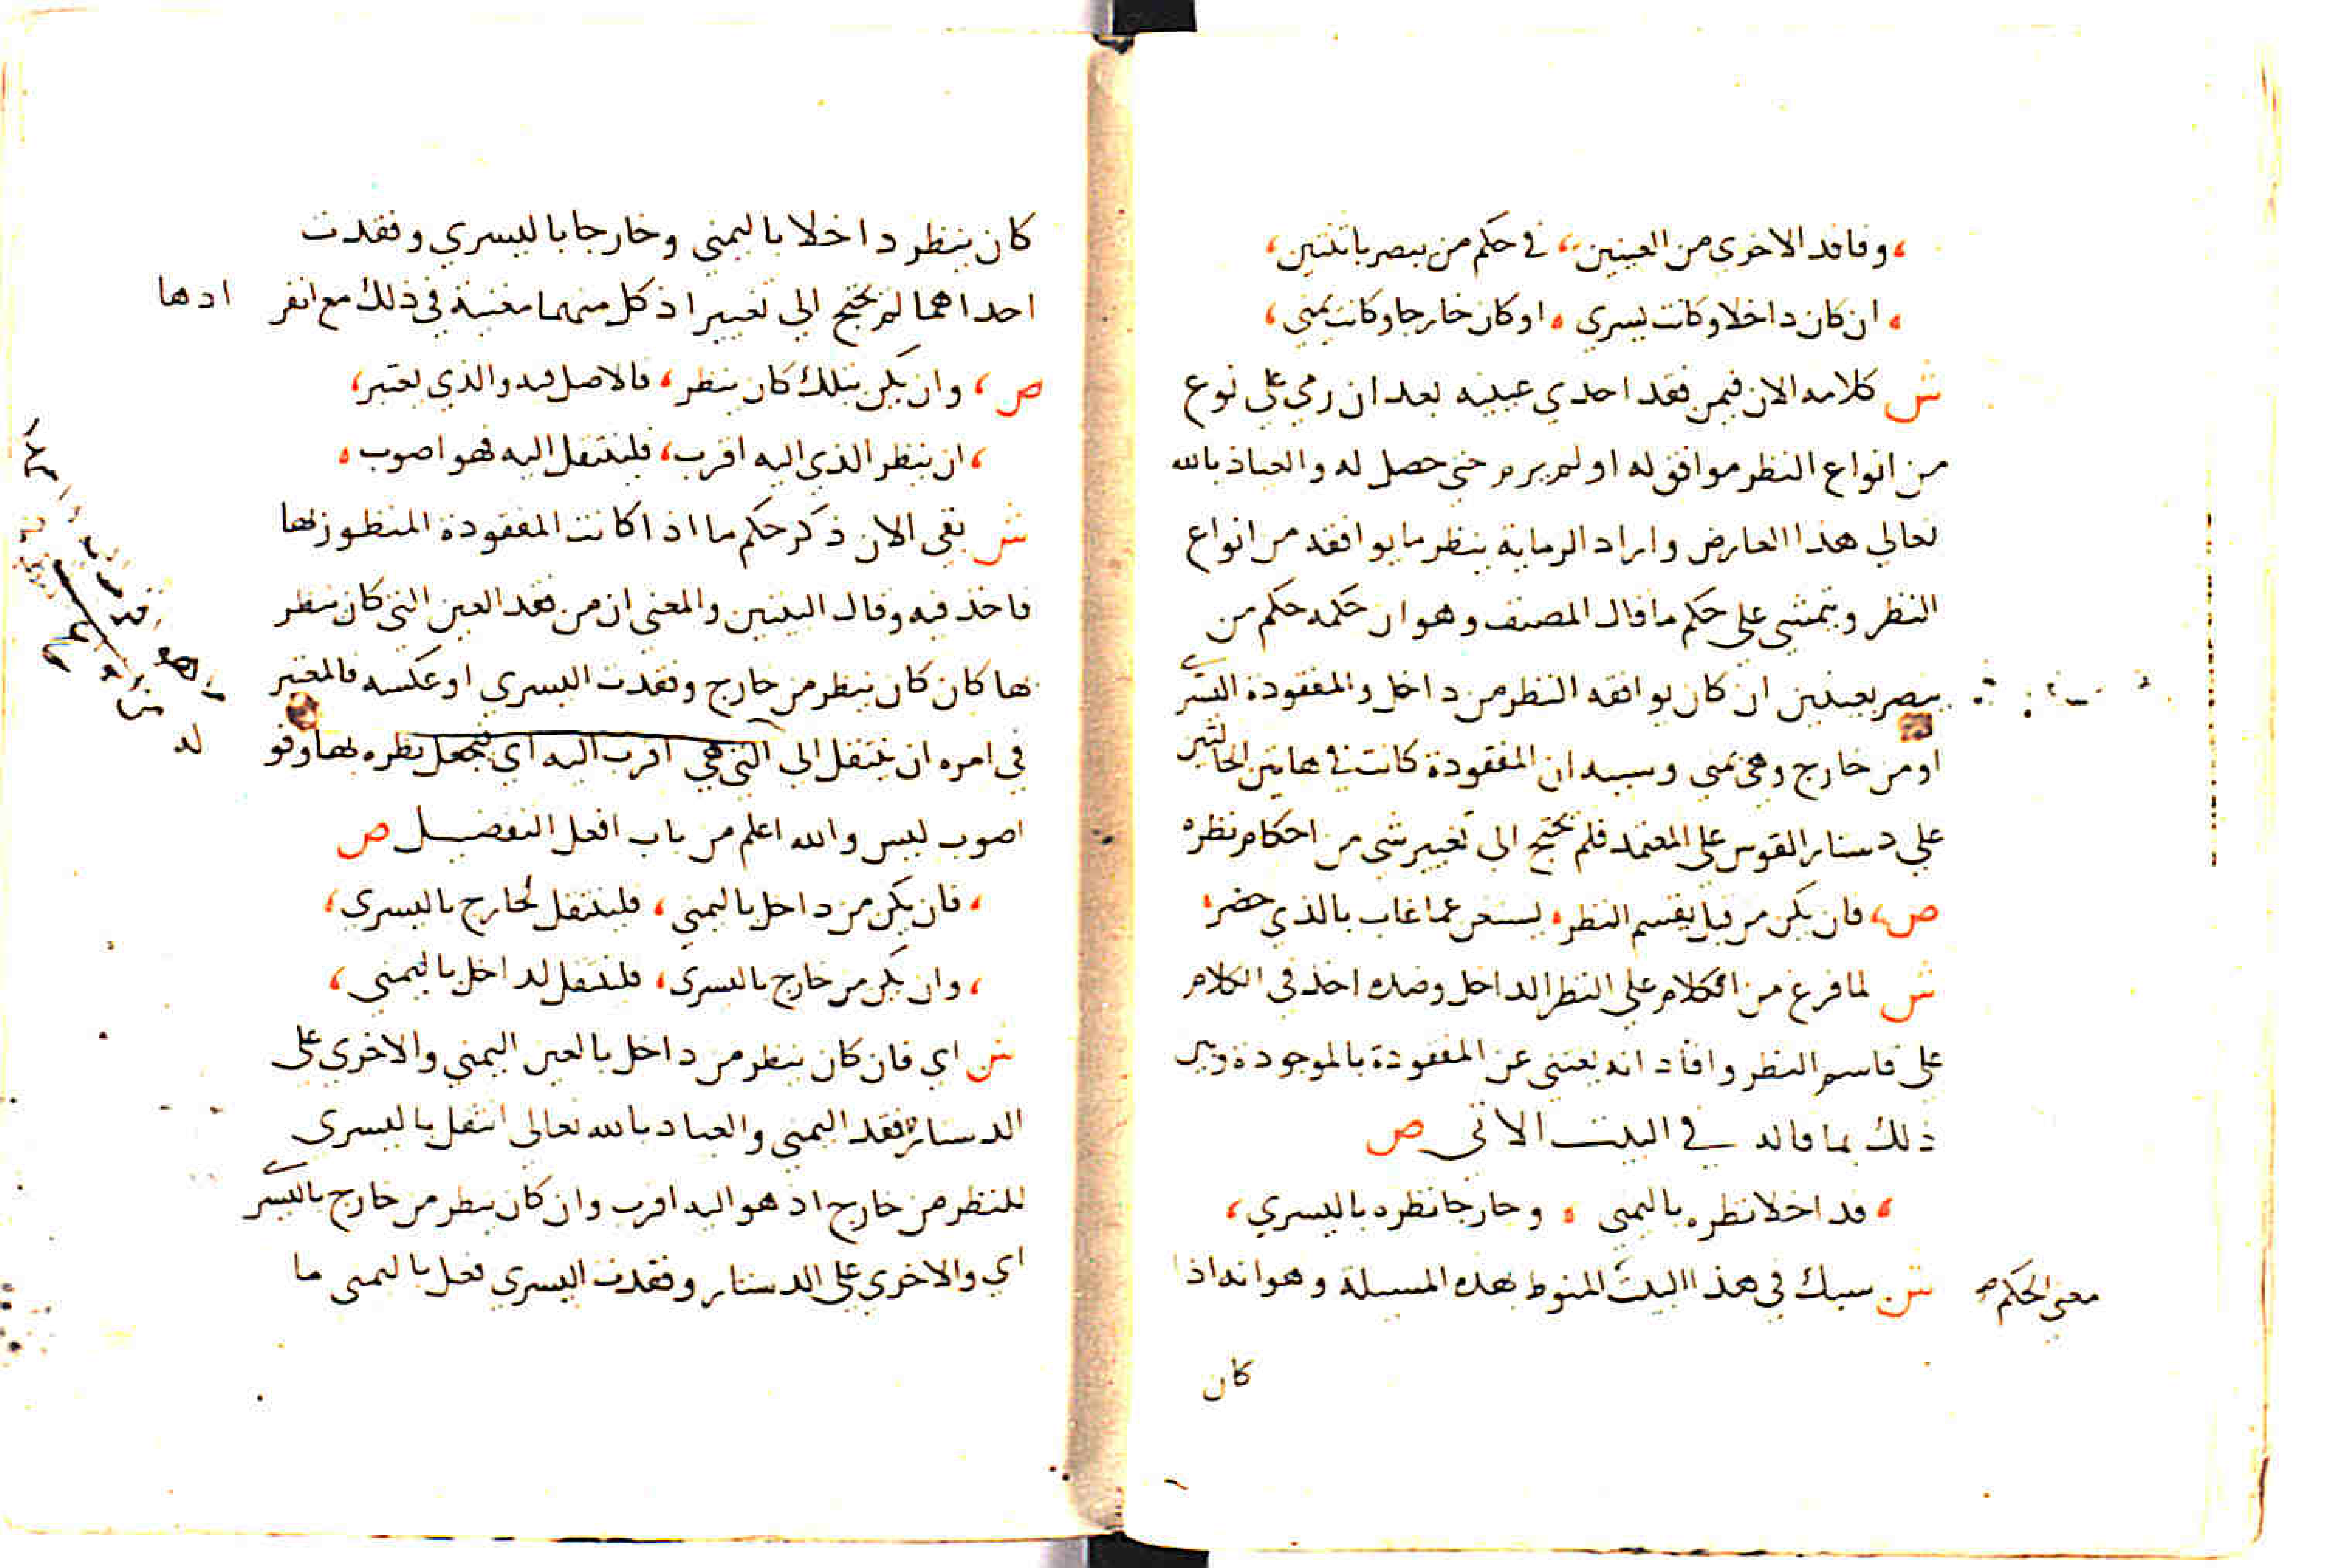 ، وفاقد الاخرى من العينين ، في حكم من يبصر باثنتين ،
، ان كان داخلا وكانت يسري ، او كان خارجا وكانت يمني ،
ش كلامه الان فيمن فقد احدي عينيه بعد ان رمي علي نوع
من انواع النظر موافق له او لم يرم حتي حصل له والعياذ بالله
تعالي هذا العارض واراد الرماية ينظر ما يوافقه من انواع
النظر ويتمشي علي حكم ما قال المصنف وهو ان حكمه حكم من
يبصر بعينين ان كان يوافقه النظر من داخل والمفقودة اليسري
او من خارج وهي يمني وسببه ان المفقودة كانت في هاتين الحالتين
علي دستار القوس على المعتمد فلم يحتج الي تغيير شي من احكام نظره
ص ، فان يكن من قبل يقسم النظر ، يستغن عما غاب بالذي حضر ،
ش لما فرغ من الكلام علي النظر الداخل وضده اخذ في الكلام
على قاسم النظر وافاد انه يغتني عن المفقودة بالموجودة وبين
ذلك بما قاله في البيت الاتي ص
، فداخلا نظره باليمني ، وخارجا نظره باليسري ،
ش سبك في هذا البيت المنوط بهذه المسيلة وهو انه اذا
معني الحكم
كان
كان ينظر داخلا باليمني وخارجا باليسري وفقدت
احداهما لم يحتج الي تغيير اذ كل منهما مغنية في ذلك مع انفر ادها
ص ، وان يكن بتلك كان ينظر ، فالاصل فيه والذي يعتبر ،
، ان ينظر الذي اليه اقرب ، فلينتقل اليه فهو اصوب ،
ش بقي الان ذكر حكم ما اذا كانت المفقودة المنظور بها
فاخذ فيه وقال البيتين والمعني ان من فقد العين التي كان ينظر
بها كان كان ينظر من خارج وفقدت اليسري او عكسه فالمعتبر
في امره ان ينتقل الي التي هي اقرب اليه اي فيجعل نظره بها وقو له
اصوب ليس والله اعلم من باب افعل التفضيل ص
، فان يكن من داخل باليمني ، فلينتقل لخارج باليسري ،
، وان يكن من خارج باليسرى ، فلينتقل لداخل باليمني ،
ش اي فان كان ينظر من داخل بالعين اليمني والاخري على
الدستار ففقد اليمني والعياذ بالله تعالى انتقل باليسرى
للنظر من خارج اذ هو اليه اقرب وان كان ينظر من خارج باليسري
اي والاخري على الدستار وفقدت اليسري فعل باليمني ما